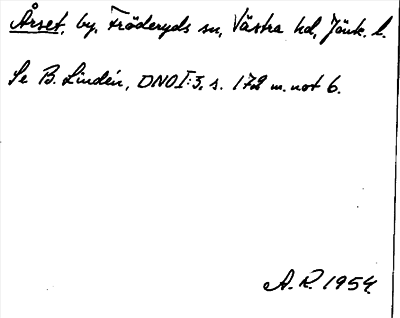 Årset, by, Fröderyds sn, Västra hd, Jönk. l.
Se B. Lindén, DNO I:3, s. 172 m. not 6.
A. R. 1954.